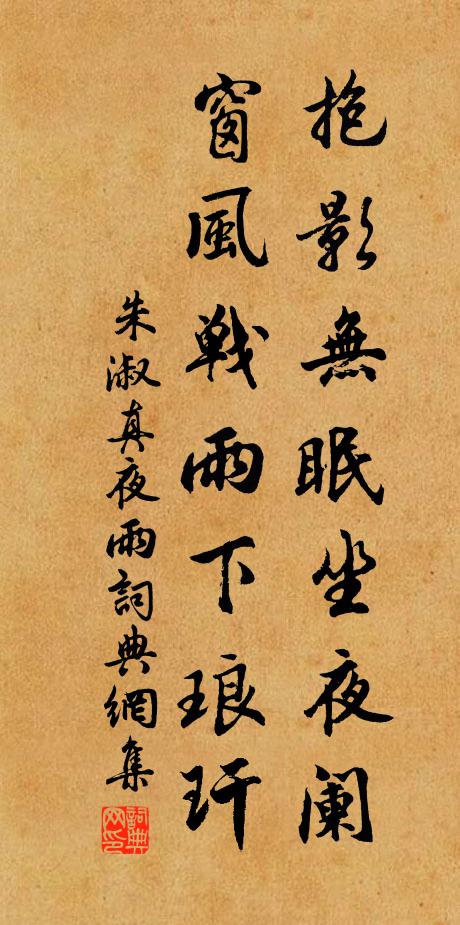 抱影無眠坐夜阑
窗風戰雨下琅玕
朱淑真夜雨詞典網集
詞典
网印